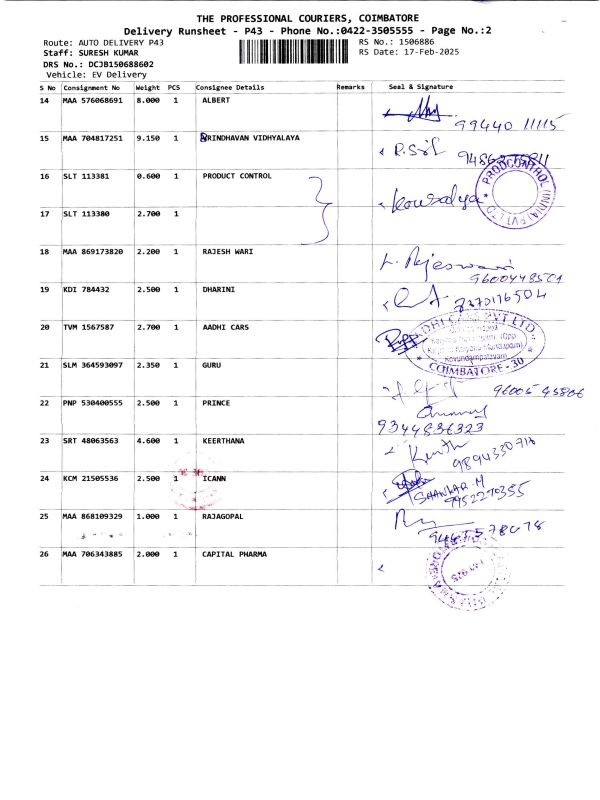 THE PROFESSIONAL COURIERS, COIMBATORE
Delivery Runsheet - P43 - Phone No.:0422-3505555 - Page No.:2
Route: AUTO DELIVERY P43 RS No.: 1506886
Staff: SURESH KUMAR RS Date: 17-Feb-2025
DRS No.: DCJB150688602
Vehicle: EV Delivery
S No Consignment No Weight PCS Consignee Details Remarks Seal & Signature
14 MAA 576068691 8.000 1 ALBERT
99440 11115
15 MAA 704817251 9.150 1 BRINDHAVAN VIDHYALAYA
R.Sil
16 SLT 113381 0.600 1 PRODUCT CONTROL
PRODCONTROL (INDIA) PVT LTD
Kousalya
17 SLT 113380 2.700 1
18 MAA 869173820 2.200 1 RAJESH WARI
L. Rajeswari
9600448501
19 KDI 784432 2.500 1 DHARINI
20 TVM 1567587 2.700 1 AADHI CARS
PVT LTD
Kovundampalayam
COIMBATORE - 30
21 SLM 364593097 2.350 1 GURU
96005 45806
22 PNP 530400555 2.500 1 PRINCE
9344836323
23 SRT 48063563 4.600 1 KEERTHANA
Keerth
9894330718
24 KCM 21505536 2.500 1 ICANN
SHANKAR.M
9952270355
25 MAA 868109329 1.000 1 RAJAGOPAL
26 MAA 706343885 2.000 1 CAPITAL PHARMA